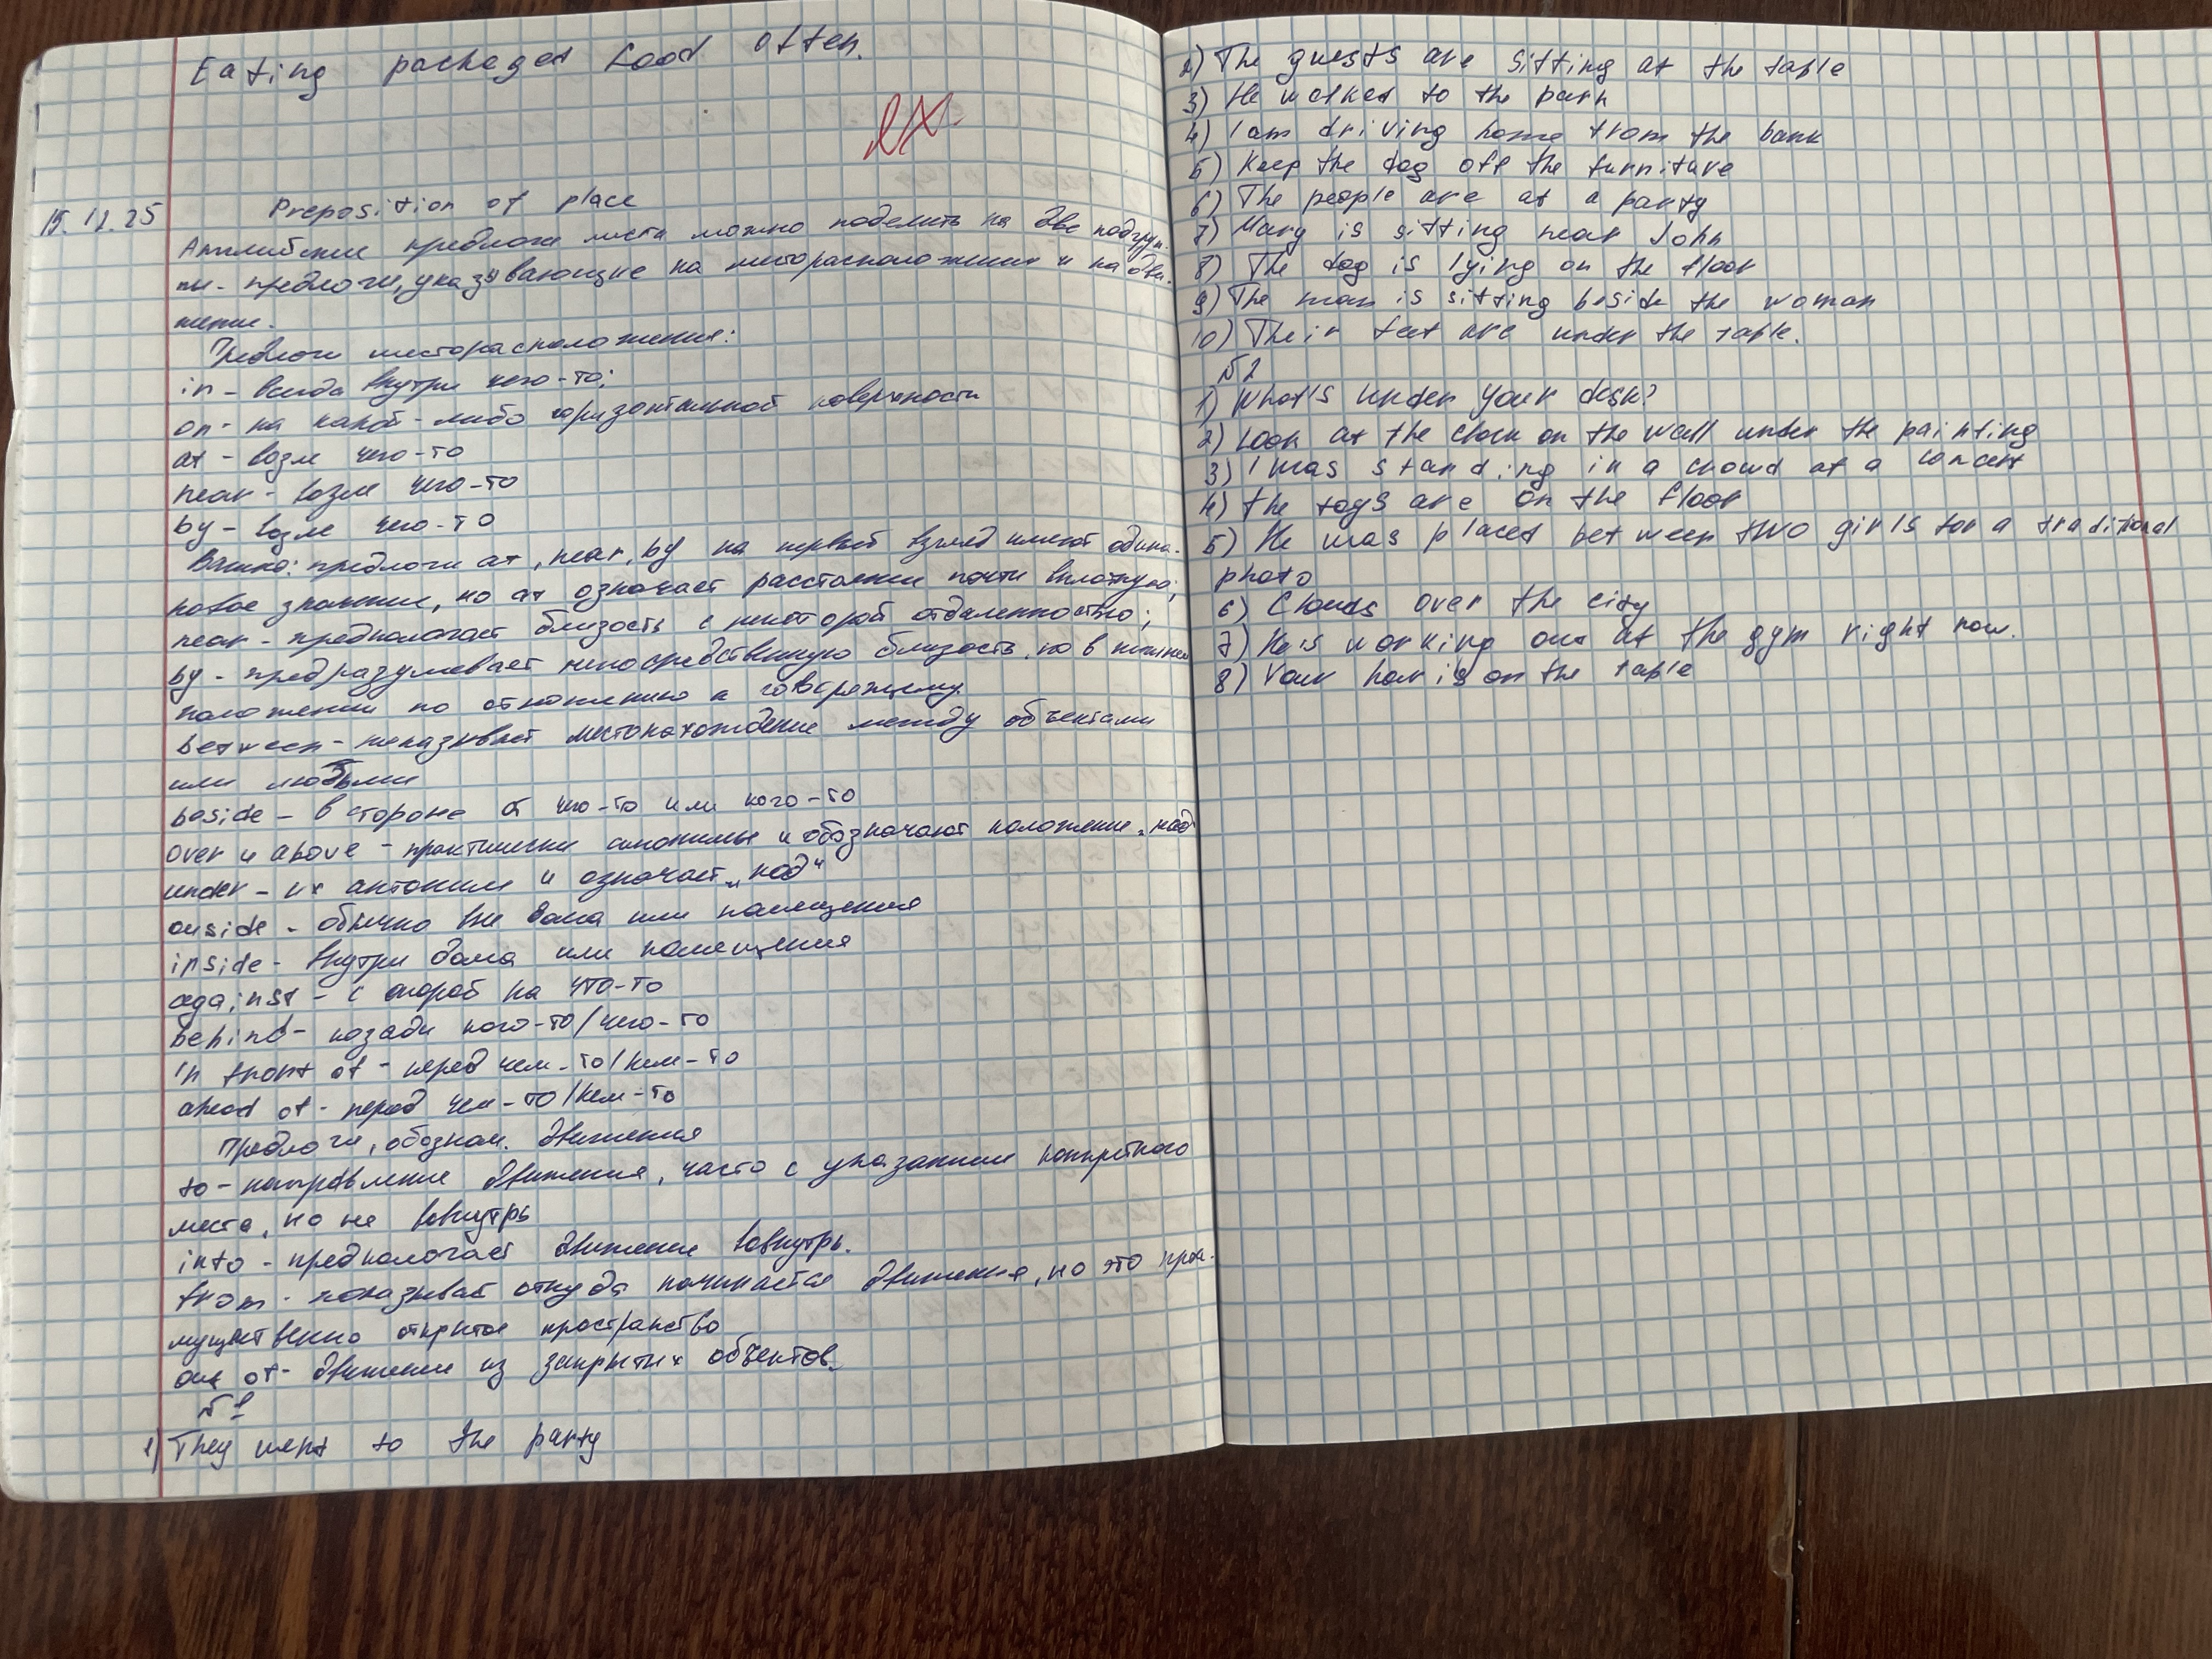 Eating packaged food often.
15.12.25 Preposition of place
Английские предлоги места можно поделить на две подгруп-
пы - предлоги, указывающие на месторасположения и на дви-
жение.
Предлоги месторасположения:
in - всегда внутри чего-то;
on - на какой-либо горизонтальной поверхности
at - возле чего-то
near - возле чего-то
by - возле чего-то
Важно: предлоги at, near, by на первый взгляд имеют одина-
ковое значение, но at означает расстояние почти вплотную;
near - предполагает близость с некоторой отдаленностью;
by - предразумевает непосредственную близость, но в
положении по отношению к говорящему.
between - показывает местонахождение между объектами
или людьми
beside - в стороне от чего-то или кого-то
over и above - практически синонимы и обозначают положение „над
under - их антоним и означает „под“
ouside - обычно вне дома или помещения
inside - внутри дома или помещения
against - с опорой на что-то
behind - позади кого-то/чего-то
in front of - перед чем-то/кем-то
ahead of - перед чем-то/кем-то
Предлоги, обознач. движения
to - направление движения, часто с указанием конкретного
места, но не вовнутрь
into - предполагает движение вовнутрь.
from - показывает откуда начинается движения, но это преи-
мущественно открытое пространство
out of - движение из закрытых объектов.
№1
1) They went to the party
2) The guests are sitting at the table
3) He walked to the park
4) I am driving home from the bank
5) Keep the dog off the furniture
6) The people are at a party
7) Mary is sitting near John
8) The dog is lying on the floor
9) The man is sitting beside the woman
10) Their feet are under the table.
№2
1) What's under your desk?
2) Look at the clock on the wall under the painting
3) I was standing in a crowd at a concert
4) the toys are on the floor
5) He was placed between two girls for a traditional
photo
6) Clouds over the city
7) He is working out at the gym right now.
8) Your hat is on the table